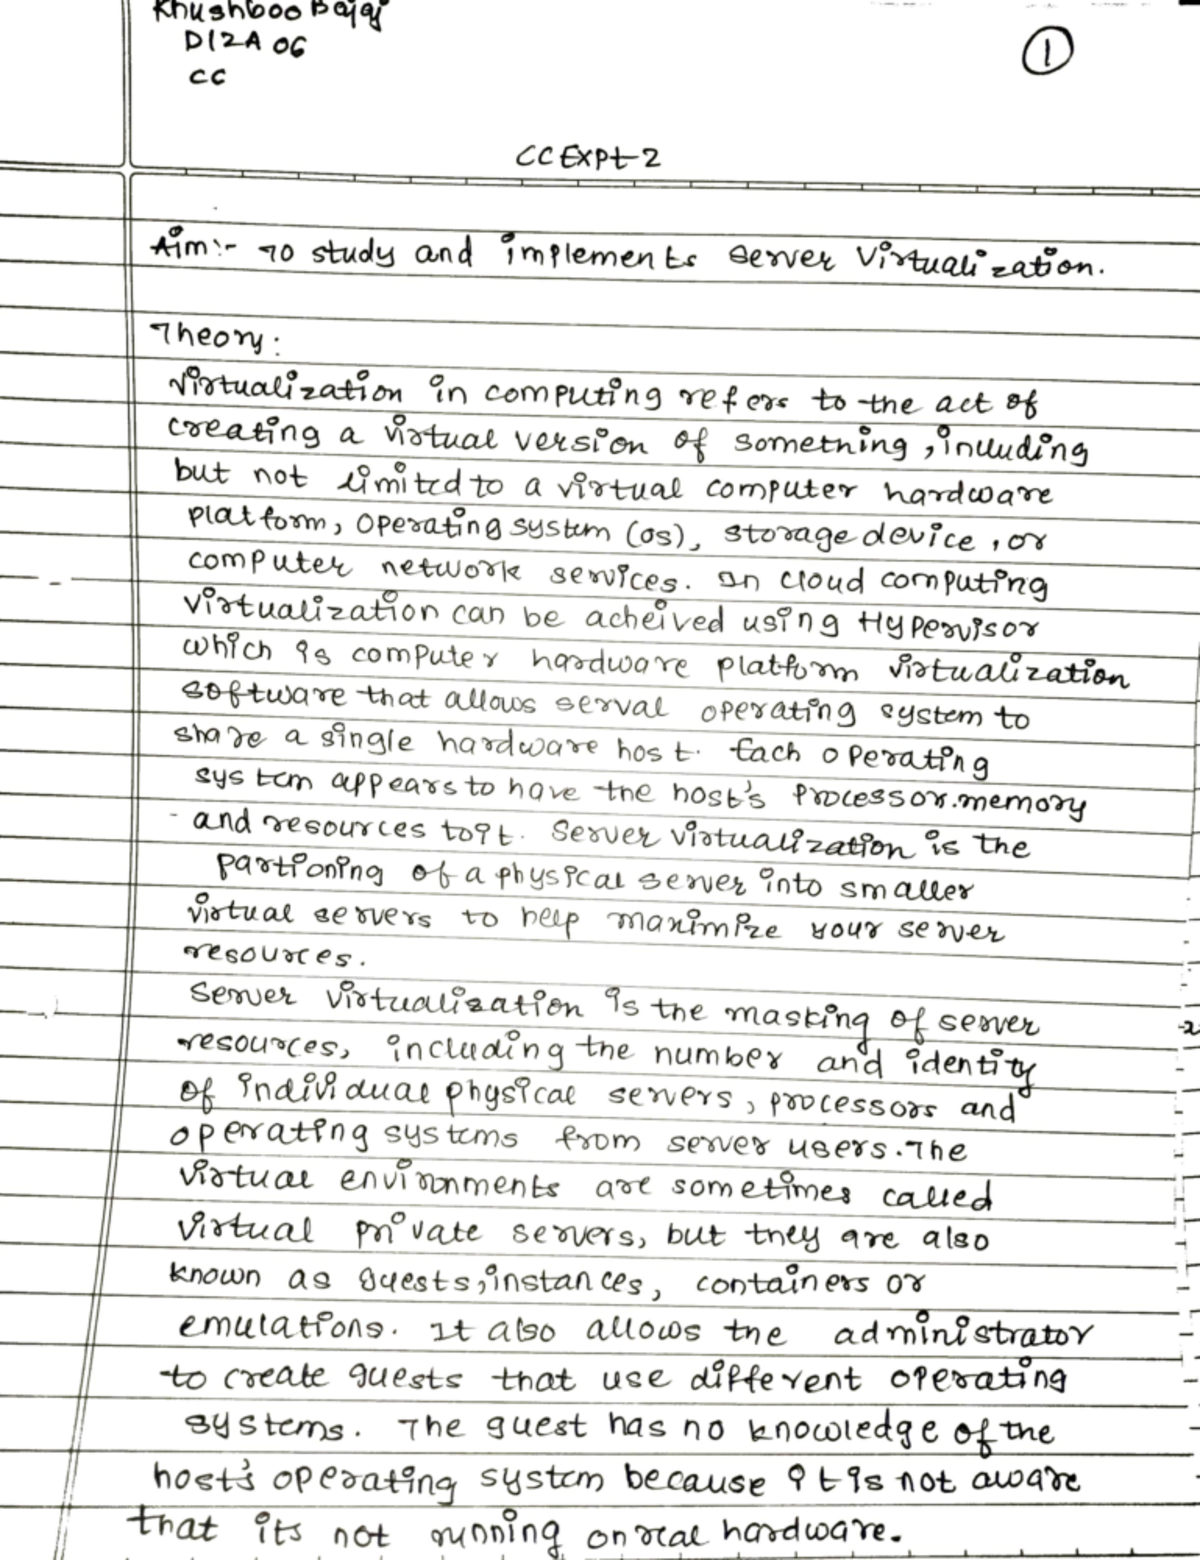 Khushboo Bajaj
D12A 06
CC
1
CC Expt-2
Aim:- To study and implements server Virtualization.
Theory:
Virtualization in computing refers to the act of
creating a virtual version of something, including
but not limited to a virtual computer hardware
platform, operating system (os), storage device, or
computer network services. In cloud computing
virtualization can be acheived using Hypervisor
which is computer hardware platform virtualization
software that allows serval operating system to
share a single hardware host. Each operating
system appears to have the host's processor.memory
and resources to it. Server virtualization is the
partioning of a physical server into smaller
virtual servers to help maximize your server
resources.
Server virtualization is the masking of server
resources, including the number and identity
of individual physical servers, processors and
operating systems from server users. The
virtual environments are sometimes called
virtual private servers, but they are also
known as guests, instances, containers or
emulations. It also allows the administrator
to create guests that use different operating
systems. The guest has no knowledge of the
host's operating system because it is not aware
that its not running on real hardware.